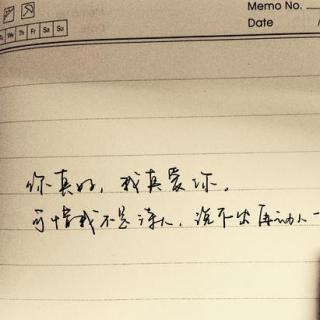 Memo No.
Date /
Tu We Th Fr Sa Su
你真好，我真爱你。
可惜我不是诗人，说不出再动人一